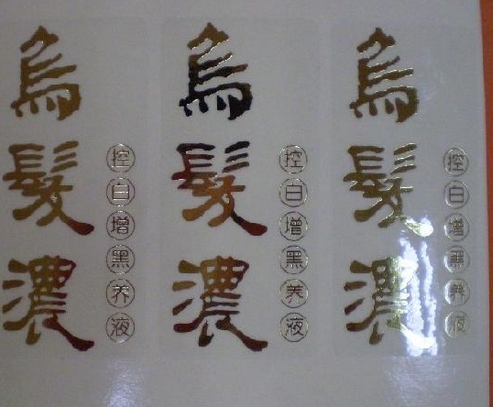 烏髮濃
控白增黑养液
烏髮濃
控白增黑养液
烏髮濃
控白增黑养液